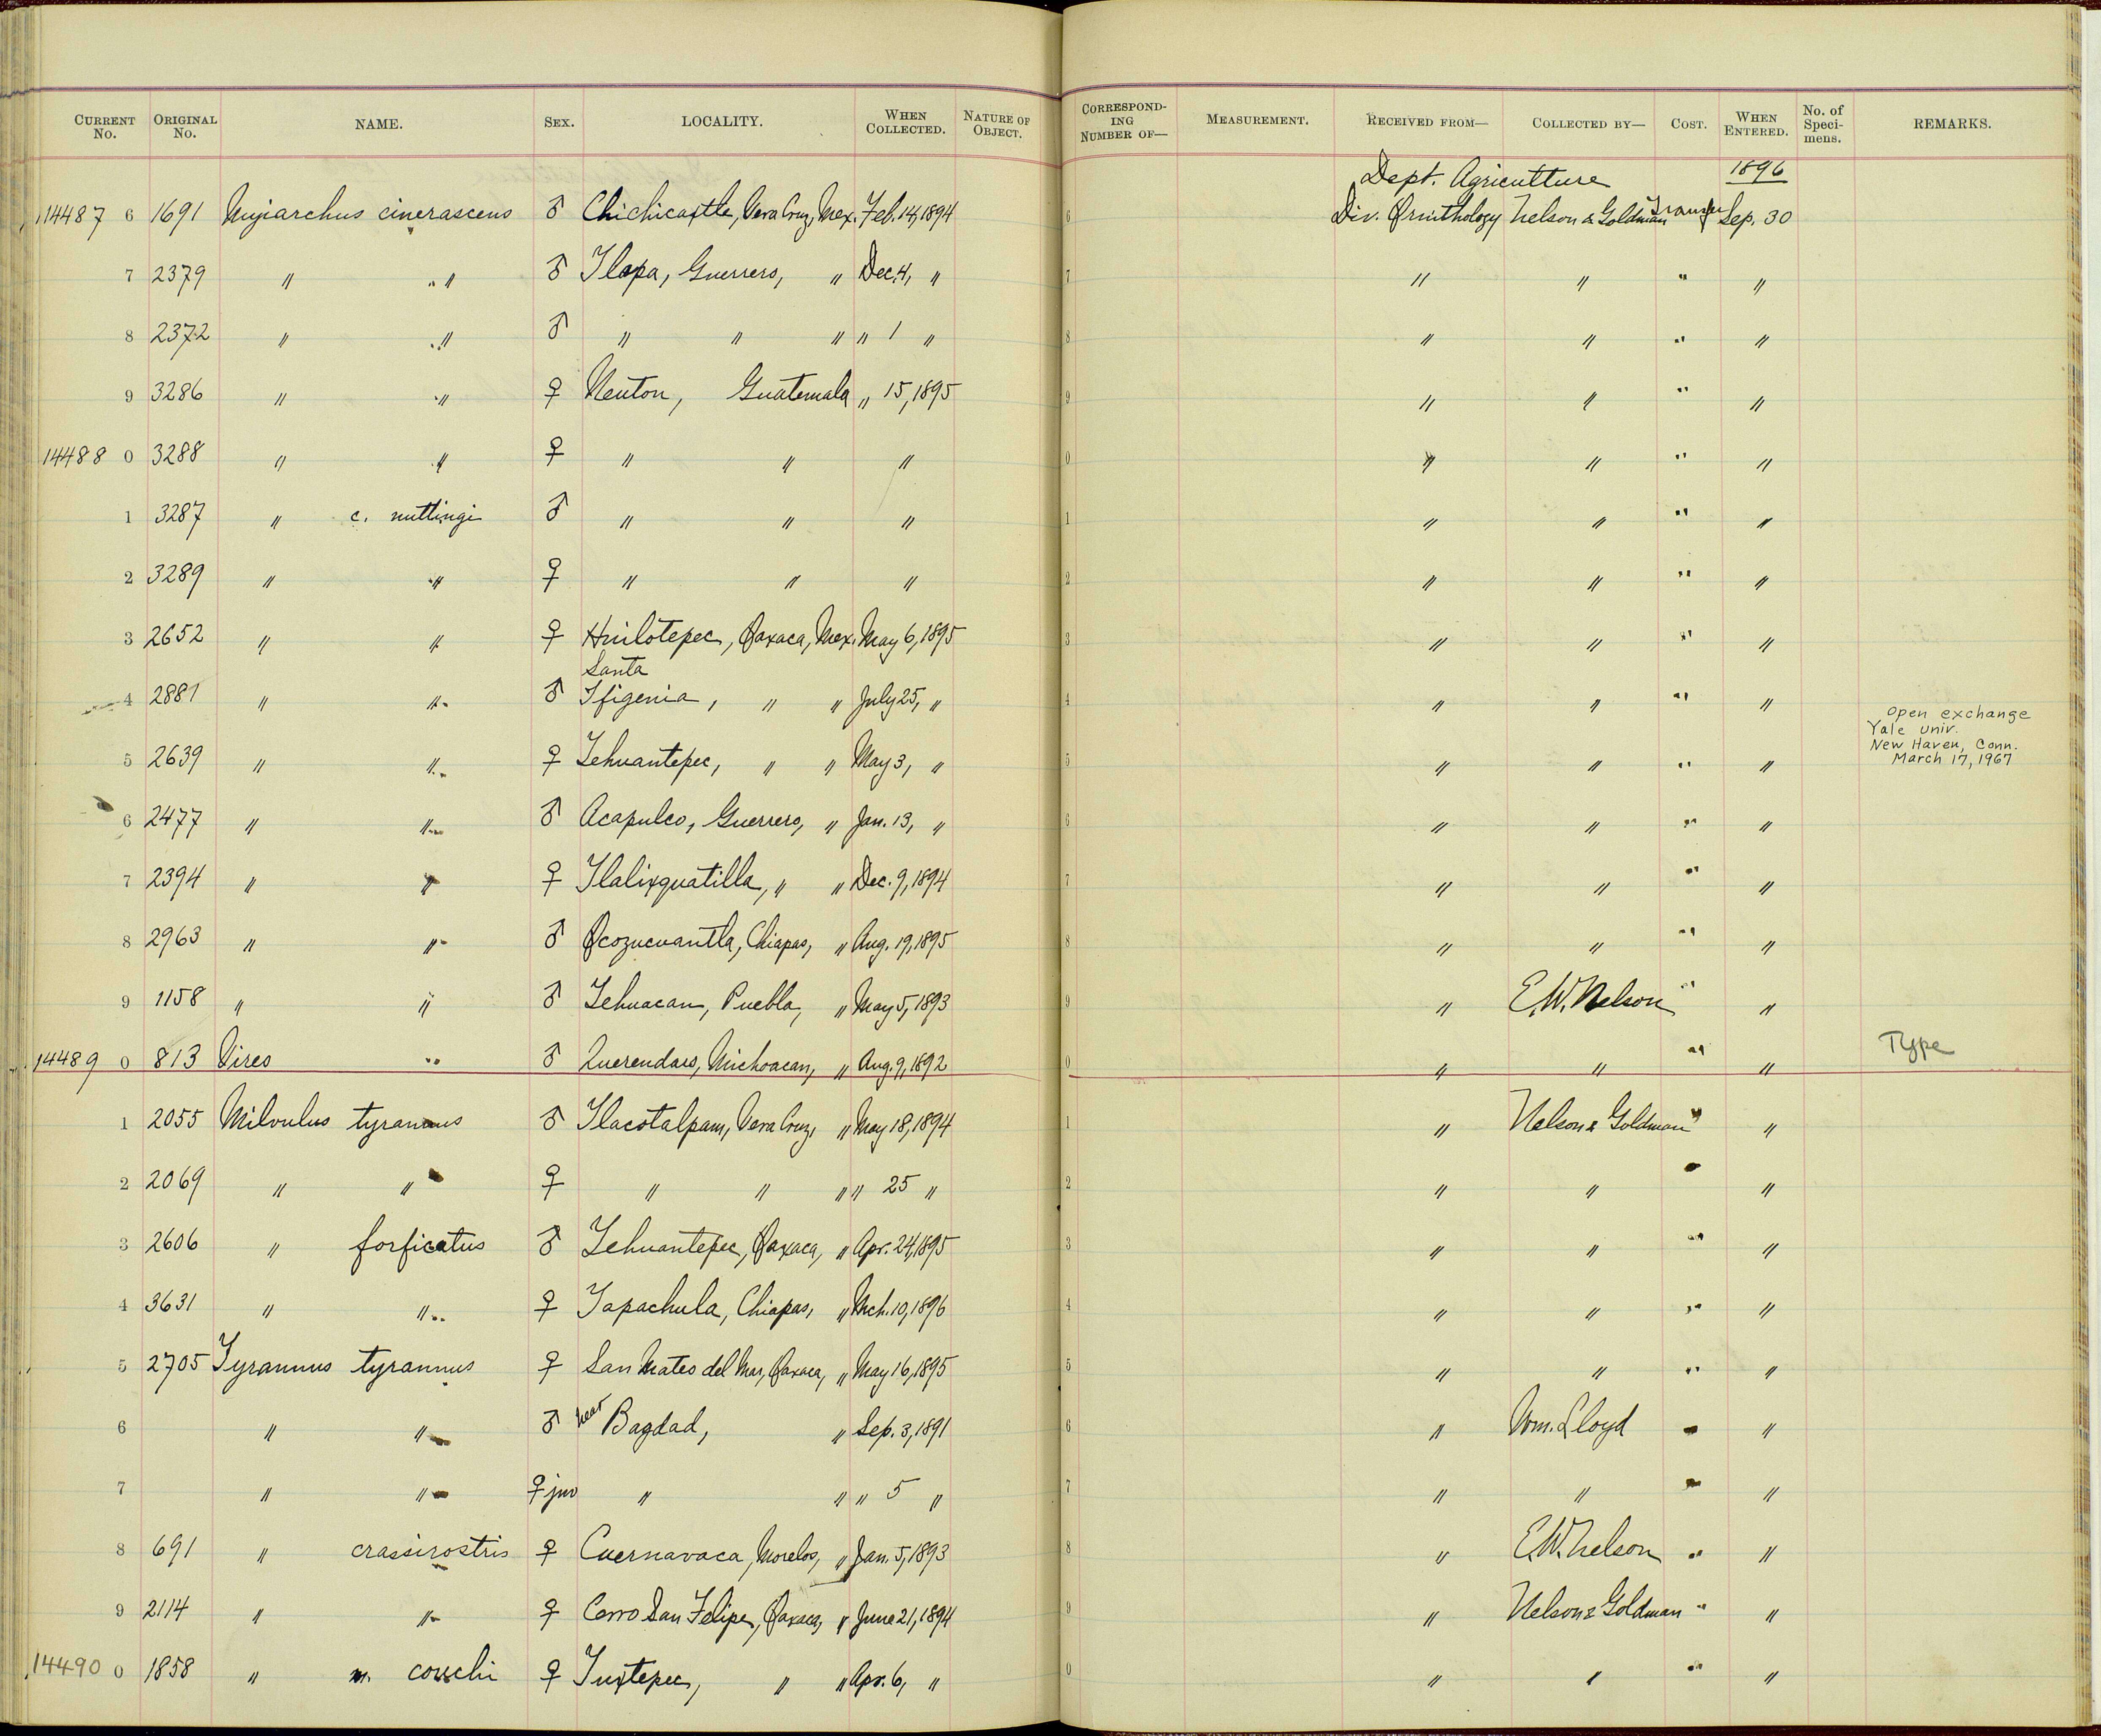 CURRENT No. ORIGINAL No. NAME. SEX. LOCALITY. WHEN COLLECTED. NATURE OF OBJECT. CORRESPONDING NUMBER OF— MEASUREMENT. RECEIVED FROM— COLLECTED BY— COST. WHEN ENTERED. No. of Specimens. REMARKS.
Dept. Agriculture 1896
14487 6 1691 Myiarchus cinerascens ♂ Chichicaxtle, Vera Cruz, Mex. Feb. 14, 1894 6 Div. Ornithology Nelson & Goldman Transfer Sep. 30
7 2379 " " ♂ Tlapa, Guerrero, " Dec. 4, " 7 " " " "
8 2372 " " ♂ " " " " 1 " 8 " " " "
9 3286 " " ♀ Nenton, Guatemala " 15, 1895 9 " " " "
14488 0 3288 " " ♀ " " " 0 " " " "
1 3287 " c. nuttingi ♂ " " " 1 " " " "
2 3289 " " ♀ " " " 2 " " " "
3 2652 " " ♀ Huilotepec, Oaxaca, Mex. May 6, 1895 3 " " " "
4 2881 " " ♂ Santa Ifigenia, " " July 25, " 4 " " " "
5 2639 " " ♀ Tehuantepec, " " May 3, " 5 " " " " Open exchange
Yale Univ.
New Haven, Conn.
March 17, 1967
6 2477 " " ♂ Acapulco, Guerrero, " Jan. 13, " 6 " " " "
7 2394 " " ♀ Tlalixquatilla, " " Dec. 9, 1894 7 " " " "
8 2963 " " ♂ Ocozucuantla, Chiapas, " Aug. 19, 1895 8 " " " "
9 1158 " " ♂ Tehuacan, Puebla, " May 5, 1893 9 " E.W. Nelson " "
14489 0 813 Vireo " ♂ Querendaro, Michoacan, " Aug. 9, 1892 0 " " " " Type
1 2055 Milvulus tyrannus ♂ Tlacotalpam, Vera Cruz, " May 18, 1894 1 " Nelson & Goldman " "
2 2069 " " ♀ " " " " 25 " 2 " " " "
3 2606 " forficatus ♂ Tehuantepec, Oaxaca, " Apr. 24, 1895 3 " " " "
4 3631 " " ♀ Tapachula, Chiapas, " Mch. 10, 1896 4 " " " "
5 2705 Tyrannus tyrannus ♀ San Mateo del Mar, Oaxaca, " May 16, 1895 5 " " " "
6 " " ♂ near Bagdad, " Sep. 3, 1891 6 " Wm. Lloyd " "
7 " " ♀ juv " " " 5 " 7 " " " "
8 691 " crassirostris ♀ Cuernavaca, Morelos, " Jan. 5, 1893 8 " E.W. Nelson " "
9 2114 " " ♀ Cerro San Felipe, Oaxaca, " June 21, 1894 9 " Nelson & Goldman " "
14490 0 1858 " m. couchi ♀ Tuxtepec, " " Apr. 6, " 0 " " " "